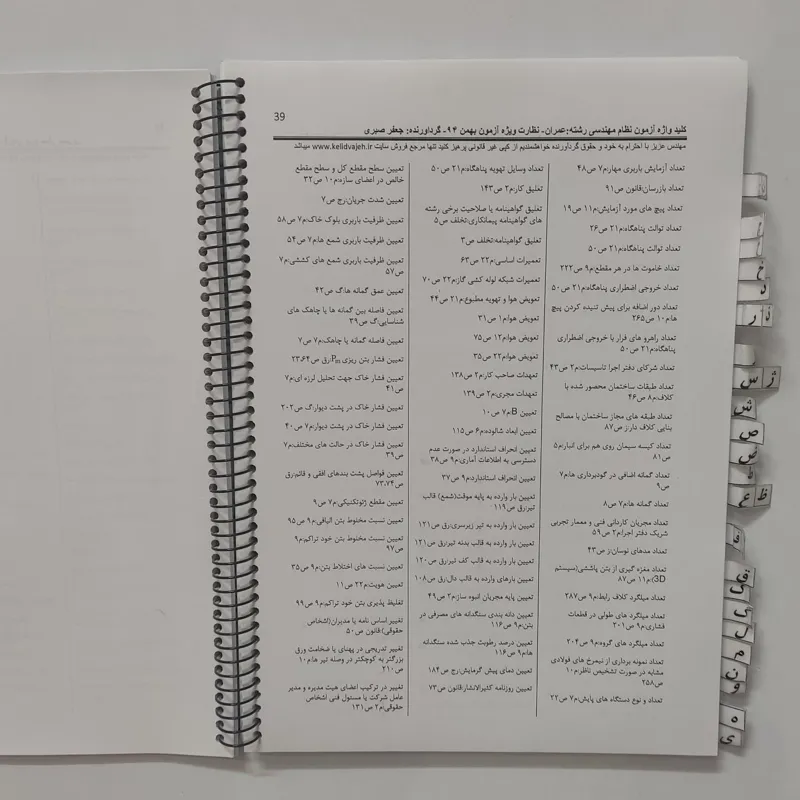 39
کلید واژه آزمون نظام مهندسی رشته:عمران- نظارت ویژه آزمون بهمن ۹۴- گردآورنده: جعفر صبری
مهندس عزیز با احترام به خود و حقوق گردآورنده خواهشمندیم از کپی غیر قانونی پرهیز کنید تنها مرجع فروش سایت www.kelidvajeh.ir میباشد
تعداد آزمایش باربری مهار:م۷ ص۴۸
تعداد بازرسان:قانون ص۹۱
تعداد پیچ های مورد آزمایش:م۱۱ ص۱۹
تعداد توالت پناهگاه:م۲۱ ص۲۶
تعداد توالت پناهگاه:م۲۱ ص۵۰
تعداد خاموت ها در هر مقطع:م۹ ص۲۲۲
تعداد خروجی اضطراری پناهگاه:م۲۱ ص۵۰
تعداد دور اضافه برای پیش تنیده کردن پیچ
ها:م۱۰ ص۲۶۵
تعداد راهرو های فرار با خروجی اضطراری
پناهگاه:م۲۱ ص۵۰
تعداد شرکای دفتر اجرا تاسیسات:م۲ ص۴۳
تعداد طبقات ساختمان محصور شده با
کلاف:م۸ ص۴۶
تعداد طبقه های مجاز ساختمان با مصالح
بنایی کلاف دار:ز ص۸۷
تعداد کیسه سیمان روی هم برای انبار:م۵
ص۸۱
تعداد گمانه اضافی در گودبرداری ها:م۷
ص۹
تعداد گمانه ها:م۷ ص۸
تعداد مجریان کاردانی فنی و معمار تجربی
شریک دفتر اجرا:م۲ ص۵۹
تعداد مدهای نوسان:ز ص۴۳
تعداد مغزه گیری از بتن پاششی(سیستم
3D):م۱۱ ص۸۷
تعداد میلگرد کلاف رابط:م۹ ص۲۸۷
تعداد میلگرد های طولی در قطعات
فشاری:م۹ ص۲۰۱
تعداد میلگرد های گروه:م۹ ص۲۰۴
تعداد نمونه برداری از نیمرخ های فولادی
مشابه در صورت تشخیص ناظر:م۱۰
ص۲۵۸
تعداد و نوع دستگاه های پایش:م۷ ص۲۲
تعداد وسایل تهویه پناهگاه:م۲۱ ص۵۰
تعلیق کار:م۲ ص۱۴۳
تعلیق گواهینامه یا صلاحیت برخی رشته
های گواهینامه پیمانکاری:تخلف ص۵
تعلیق گواهینامه:تخلف ص۳
تعمیرات اساسی:م۲۲ ص۶۳
تعمیرات شبکه لوله کشی گاز:م۲۲ ص۷۰
تعویض هوا و تهویه مطبوع:م۲۱ ص۴۴
تعویض هوا:م۱ ص۳۱
تعویض هوا:م۱۲ ص۷۵
تعویض هوا:م۲۲ ص۳۵
تعهدات صاحب کار:م۲ ص۱۳۸
تعهدات مجری:م۲ ص۱۳۹
تعیین B:م۷ ص۱۰
تعیین ابعاد شالوده:م۶ ص۱۱۵
تعیین انحراف استاندارد در صورت عدم
دسترسی به اطلاعات آماری:م۹ ص۳۸
تعیین انحراف استاندارد:م۹ ص۳۷
تعیین بار وارده به پایه موقت(شمع) قالب
تیر:رق ص۱۱۹
تعیین بار وارده به تیر زیرسری:رق ص۱۲۱
تعیین بار وارده به قالب بدنه تیر:رق ص۱۲۱
تعیین بار وارده به قالب کف تیر:رق ص۱۲۰
تعیین بارهای وارده به قالب دال:رق ص۱۰۸
تعیین پایه مجریان انبوه ساز:م۲ ص۴۹
تعیین دانه بندی سنگدانه های مصرفی در
بتن:م۹ ص۱۱۶
تعیین درصد رطوبت جذب شده سنگدانه
ها:م۹ ص۱۱۶
تعیین دمای پیش گرمایش:رج ص۱۸۴
تعیین روزنامه کثیرالانشار:قانون ص۷۳
تعیین سطح مقطع کل و سطح مقطع
خالص در اعضای سازه:م۱۰ ص۳۲
تعیین شدت جریان:رج ص۷
تعیین ظرفیت باربری بلوک خاک:م۷ ص۵۸
تعیین ظرفیت باربری شمع ها:م۷ ص۵۴
تعیین ظرفیت باربری شمع های کششی:م۷
ص۵۷
تعیین عمق گمانه ها:گ ص۴۲
تعیین فاصله بین گمانه ها یا چاهک های
شناسایی:گ ص۳۹
تعیین فاصله گمانه یا چاهک:م۷ ص۷
تعیین فشار بتن ریزی Pm:رق ص۲۳،۶۴
تعیین فشار خاک جهت تحلیل لرزه ای:م۷
ص۴۱
تعیین فشار خاک در پشت دیوار:گ ص۲۰۲
تعیین فشار خاک در پشت دیوار:م۷ ص۴۰
تعیین فشار خاک در حالت های مختلف:م۷
ص۳۹
تعیین فواصل پشت بندهای افقی و قائم:رق
ص۷۳،۷۴
تعیین مقطع ژئوتکنیکی:م۷ ص۹
تعیین نسبت مخلوط بتن الیافی:م۹ ص۹۵
تعیین نسبت مخلوط بتن خود تراکم:م۹
ص۹۷
تعیین نسبت های اختلاط بتن:م۹ ص۳۵
تعیین هویت:م۲۲ ص۱۱
تغلیظ پذیری بتن خود تراکم:م۹ ص۹۹
تغییر اساس نامه یا مدیران(اشخاص
حقوقی):قانون ص۵۰
تغییر تدریجی در پهنای یا ضخامت ورق
بزرگتر به کوچکتر در وصله تیر ها:م۱۰
ص۲۱۰
تغییر در ترکیب اعضای هیت مدیره و مدیر
عامل شرکت یا مسئول فنی اشخاص
حقوقی:م۲ ص۱۳۱